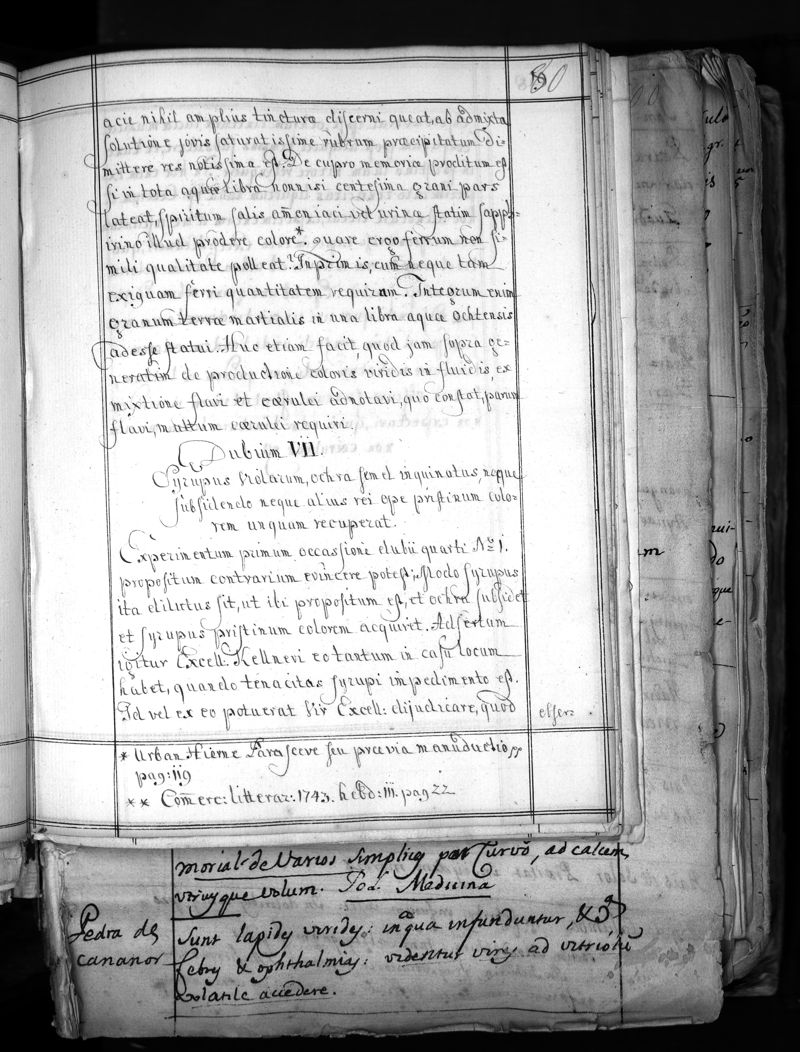 80
acie nihil amplius tincturæ discerni queat, ab admixta
solutione jovis saturatissime rubrum præcipitatum di-
mittere res notissima est. De cupro memoriæ proditum est
si in tota aquæ libra non nisi centesima grani pars
lateat, spiritum salis amēniaci vel urinæ statim sapph-
irino illud prodere colore*. quare ergo ferrum non si-
mili qualitate polleat? Inprimis, cum neque tam
exiguam ferri quantitatem requiram. Integrum enim
granum terræ martialis in una libra aquæ ochtensis
adesse statui. Huc etiam facit, quod jam supra ge-
neratim de productione coloris viridis in fluidis, ex
mixtione flavi et cærulei adnotavi, quo constat, parum
flavi, multum cærulei requiri.
Dubium VII.
Syrupus Violarum, ochra semel inquinatus, neque
subsidendo neque alius rei ope pristinum colo-
rem unquam recuperat.
Experimentum primum occassione dubii quarti No. 1.
propositum contrarium evincere potest; Modo syrupus
ita dilutus sit, ut ibi propositum est, et ochra subsidet
et syrupus pristinum colorem acquiret. Adsertum
igitur Excell: Kellneri eo tantum in casu locum
habet, quando tenacitas syrupi impedimento est.
Id vel ex eo potuerat Vir Excell: dijudicare, quod
elser-
* Urban Hierne Parasceve seu prævia manuductio
pag: 119
** Com̄erc: litterar: 1743. hebd: III. pag 22
morial de Varios simplices por Curvo, ad calcem
utriusque volum. Medicina
Pedra de
cananor
Sunt lapides virides: in qua infunduntur, &
febry & ophthalmias: videntur vires ad vitriolū
volatile accedere.